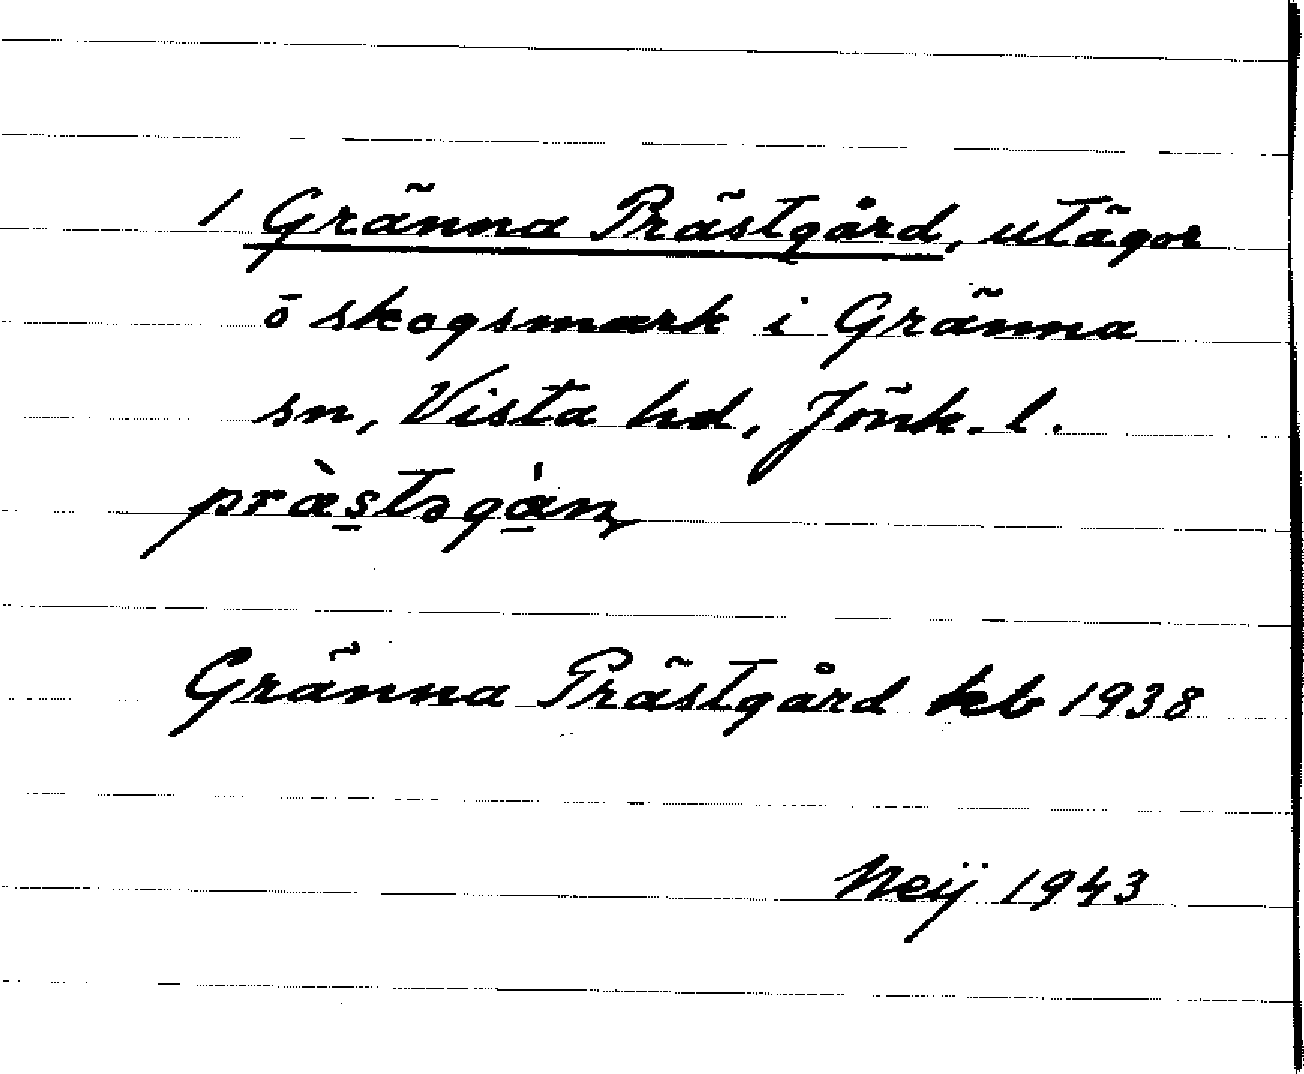 1 Gränna Prästgård, utägor
o skogsmark i Gränna
sn, Vista hd, Jönk. l.
Gränna Prästgård kb 1938
Neij 1943